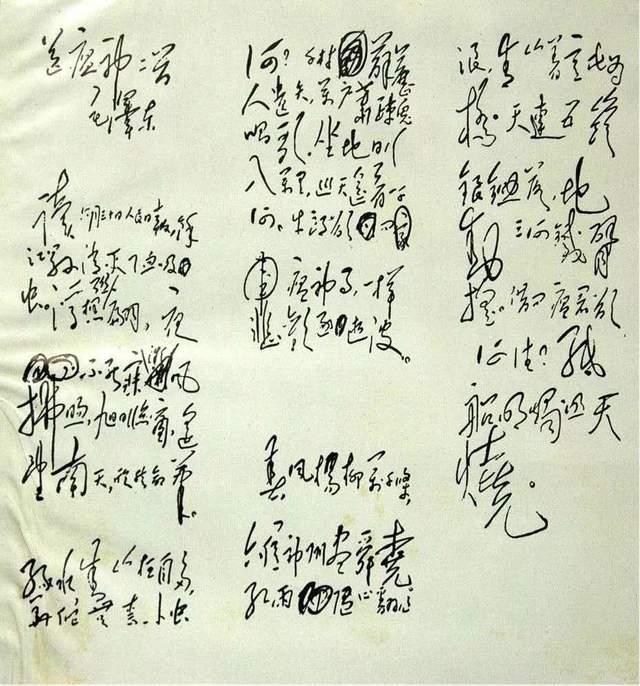 送瘟神二首
毛澤东
读六月三十日人民日报,余
江县消灭了血吸
虫。浮想联翩,夜
不能寐。微风
拂曉,旭日临窗,遥
望南天,欣然命筆。
绿水青山枉自多,
華佗無奈小虫
何?千村薜荔
人遗矢,萬户萧疏鬼
唱歌。坐地日行
八万里,巡天遥看一千
河。牛郎欲问
瘟神事,一样
悲歡逐逝波。
春风楊柳万千條,
六億神州尽舜堯。
红雨随心翻作
浪,青山着意化为
橋。天連五嶺
銀鋤落,地
動三河鐵臂
搖。借问瘟君欲
何往?纸
船明燭照天
燒。